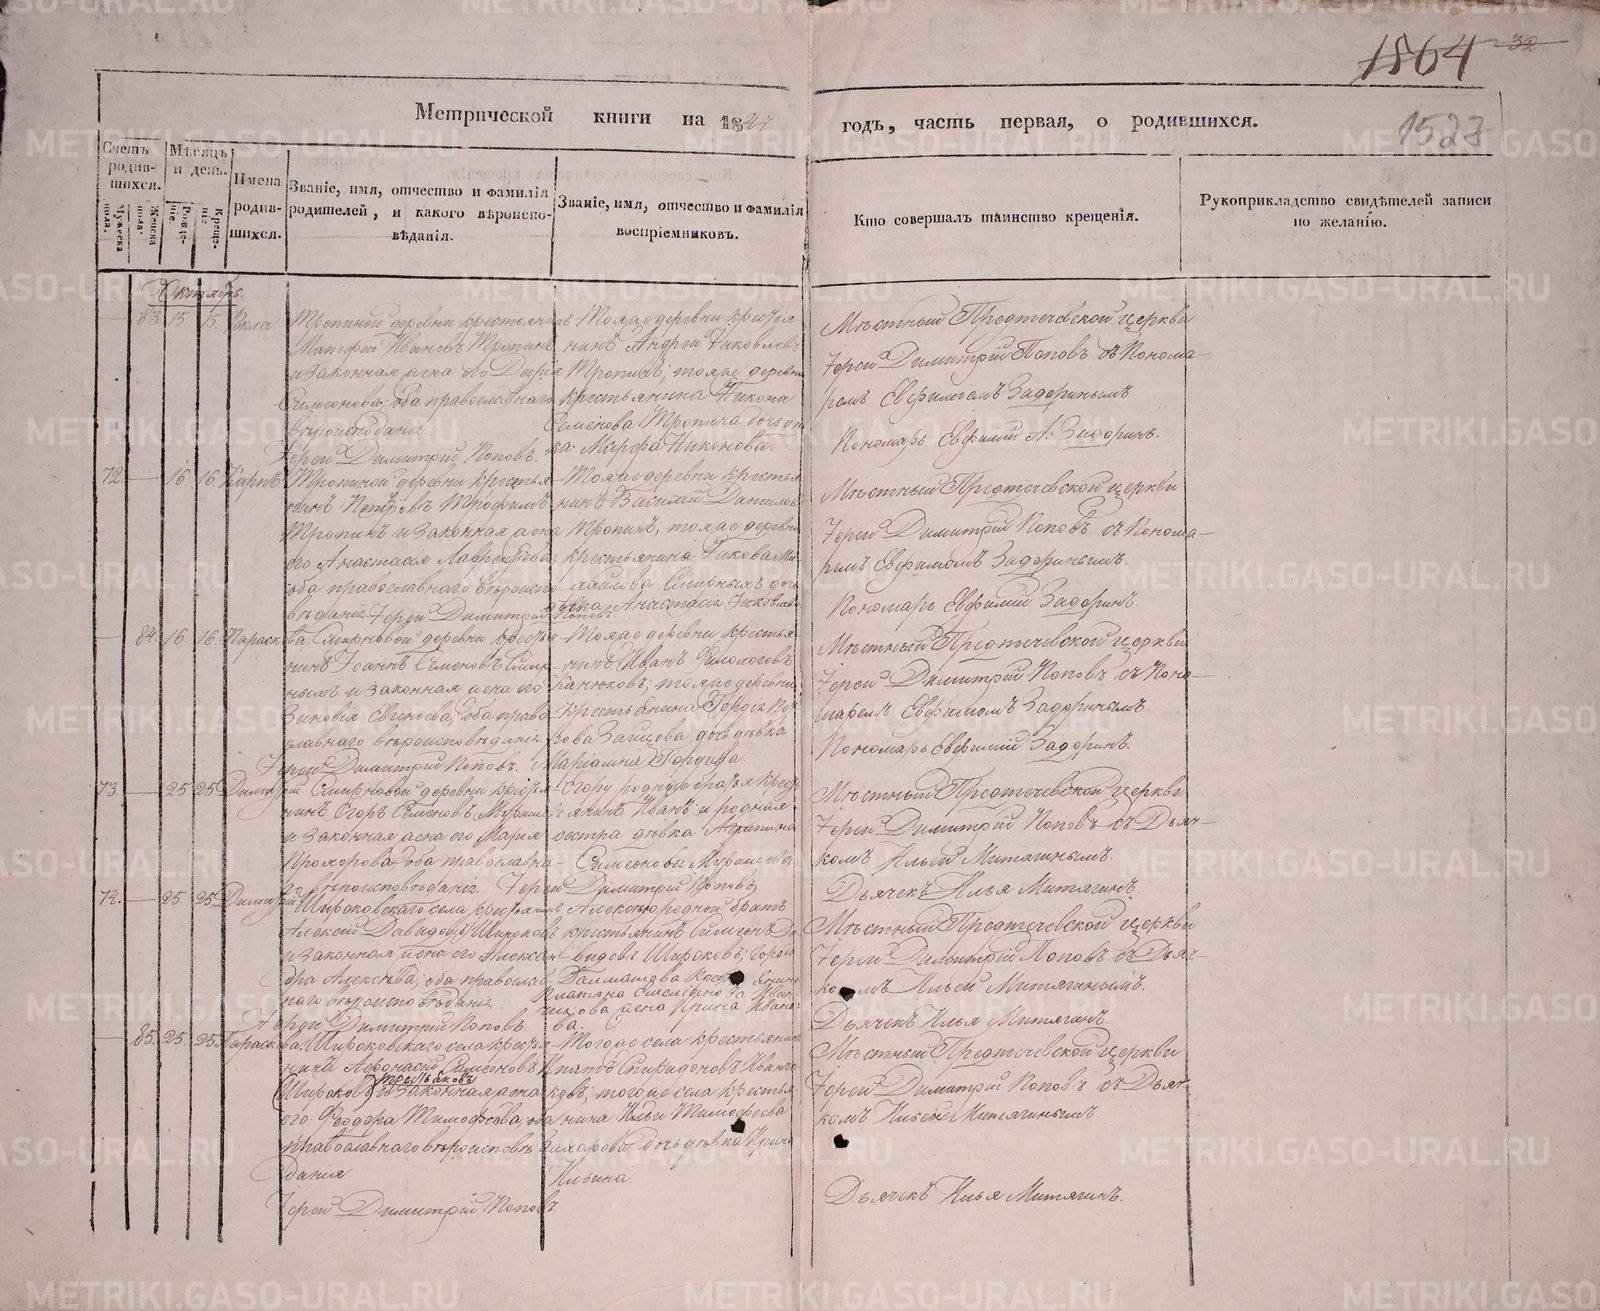 1864 32
1523
Метрической книги на 1844 годъ, часть первая, о родившихся.
Счетъ родившихся.
Мужеска пола.
Женска пола.
Мѣсяцъ и день.
Рожденіе.
Крещеніе.
Имена родившихся.
Званіе, имя, отчество и фамилія родителей, и какого вѣроисповѣданія.
Званіе, имя, отчество и фамилія воспріемниковъ.
Кто совершалъ таинство крещенія.
Рукоприкладство свидѣтелей записи по желанію.
Октябрь.
83. 15 15
Тропиной деревни крестьянинъ
Ивановъ Тропинъ
и законная жена его Дарія
Симеонова; оба православнаго
вѣроисповѣданія.
Іерей Димитрій Поповъ.
Тояже деревни крестья-
нинъ Андрей Іаковлевъ
Тропинъ; тояже деревни
крестьянина Никона
Семенова Тропина дочь
Марфа Никонова.
Мѣстный Предтечевской церкви
Іерей Димитрій Поповъ съ Понома-
ремъ Евфиміемъ Задоринымъ
Пономарь Евфимій Задоринъ.
72 16 16 Карпъ
Тропиной деревни крестья-
нинъ Петровъ Трофимъ
Тропинъ и законная жена
его Анастасія
оба православнаго вѣроиспо-
вѣданія. Іерей Димитрій Поповъ.
Тояже деревни крестья-
нинъ Василій Даниловъ
Тропинъ; тояже деревни
крестьянина Іакова Ми-
хайлова Смирныхъ дочь
дѣвка Анастасія Іаковлева
Мѣстный Предтечевской церкви
Іерей Димитрій Поповъ съ Понома-
ремъ Евфиміемъ Задоринымъ.
Пономарь Евфимій Задоринъ.
84. 16 16. Параскева.
Смирновой деревни крестья-
нинъ Іоаннъ Семеновъ Смир-
ныхъ и законная жена его
Зиновія Евгеньева, оба право-
славнаго вѣроисповѣданія.
Іерей Димитрій Поповъ.
Тояже деревни крестья-
нинъ Иванъ
Канюковъ; тояже деревни
крестьянина
дочь дѣвка
Маріамна
Мѣстный Предтечевской церкви
Іерей Димитрій Поповъ съ Поно-
маремъ Евфиміемъ Задоринымъ.
Пономарь Евфимій Задоринъ.
73 25 25 Димитрій
Смирновой деревни крестья-
нинъ Егоръ Семеновъ
и законная жена его Марія
Прохорова, оба православна-
го вѣроисповѣданія. Іерей Димитрій Поповъ
Егору родные братъ крест-
янинъ Иванъ и родная
сестра дѣвка Агрипина
Симеоновы
Мѣстный Предтечевской церкви
Іерей Димитрій Поповъ съ Дьяч-
комъ Ильей Митягинымъ.
Дьячекъ Илья Митягинъ.
74. 25 25 Димитрій
Широковскаго села крестьянинъ
Алексій Давидовъ Широковъ
и законная жена его Алексан-
дра Алексѣева; оба православ-
наго вѣроисповѣданія.
Іерей Димитрій Поповъ.
Алексію родной братъ
крестьянинъ Симеонъ Да-
видовъ Широковъ; город
жена Ирина Ивано-
ва.
Мѣстный Предтечевской церкви
Іерей Димитрій Поповъ съ Дьяч-
комъ Ильей Митягинымъ.
Дьячекъ Илья Митягинъ
85. 25 25 Параскева.
Широковскаго села крестья-
нинъ Афонасій Симеоновъ
Широковъ и законная жена
его Феодора Тимофеева, оба
православнаго вѣроисповѣ-
данія
Іерей Димитрій Поповъ
Тогоже села крестьянинъ
Спиридоновъ
тогоже села крестья-
нина Ильи Тимофеева
Захарова дочь дѣвка Ирина
Ильина.
Мѣстный Предтечевской церкви
Іерей Димитрій Поповъ съ Дьяч-
комъ Ильей Митягинымъ.
Дьячекъ Илья Митягинъ.
METRIKI.GASO-URAL.RU